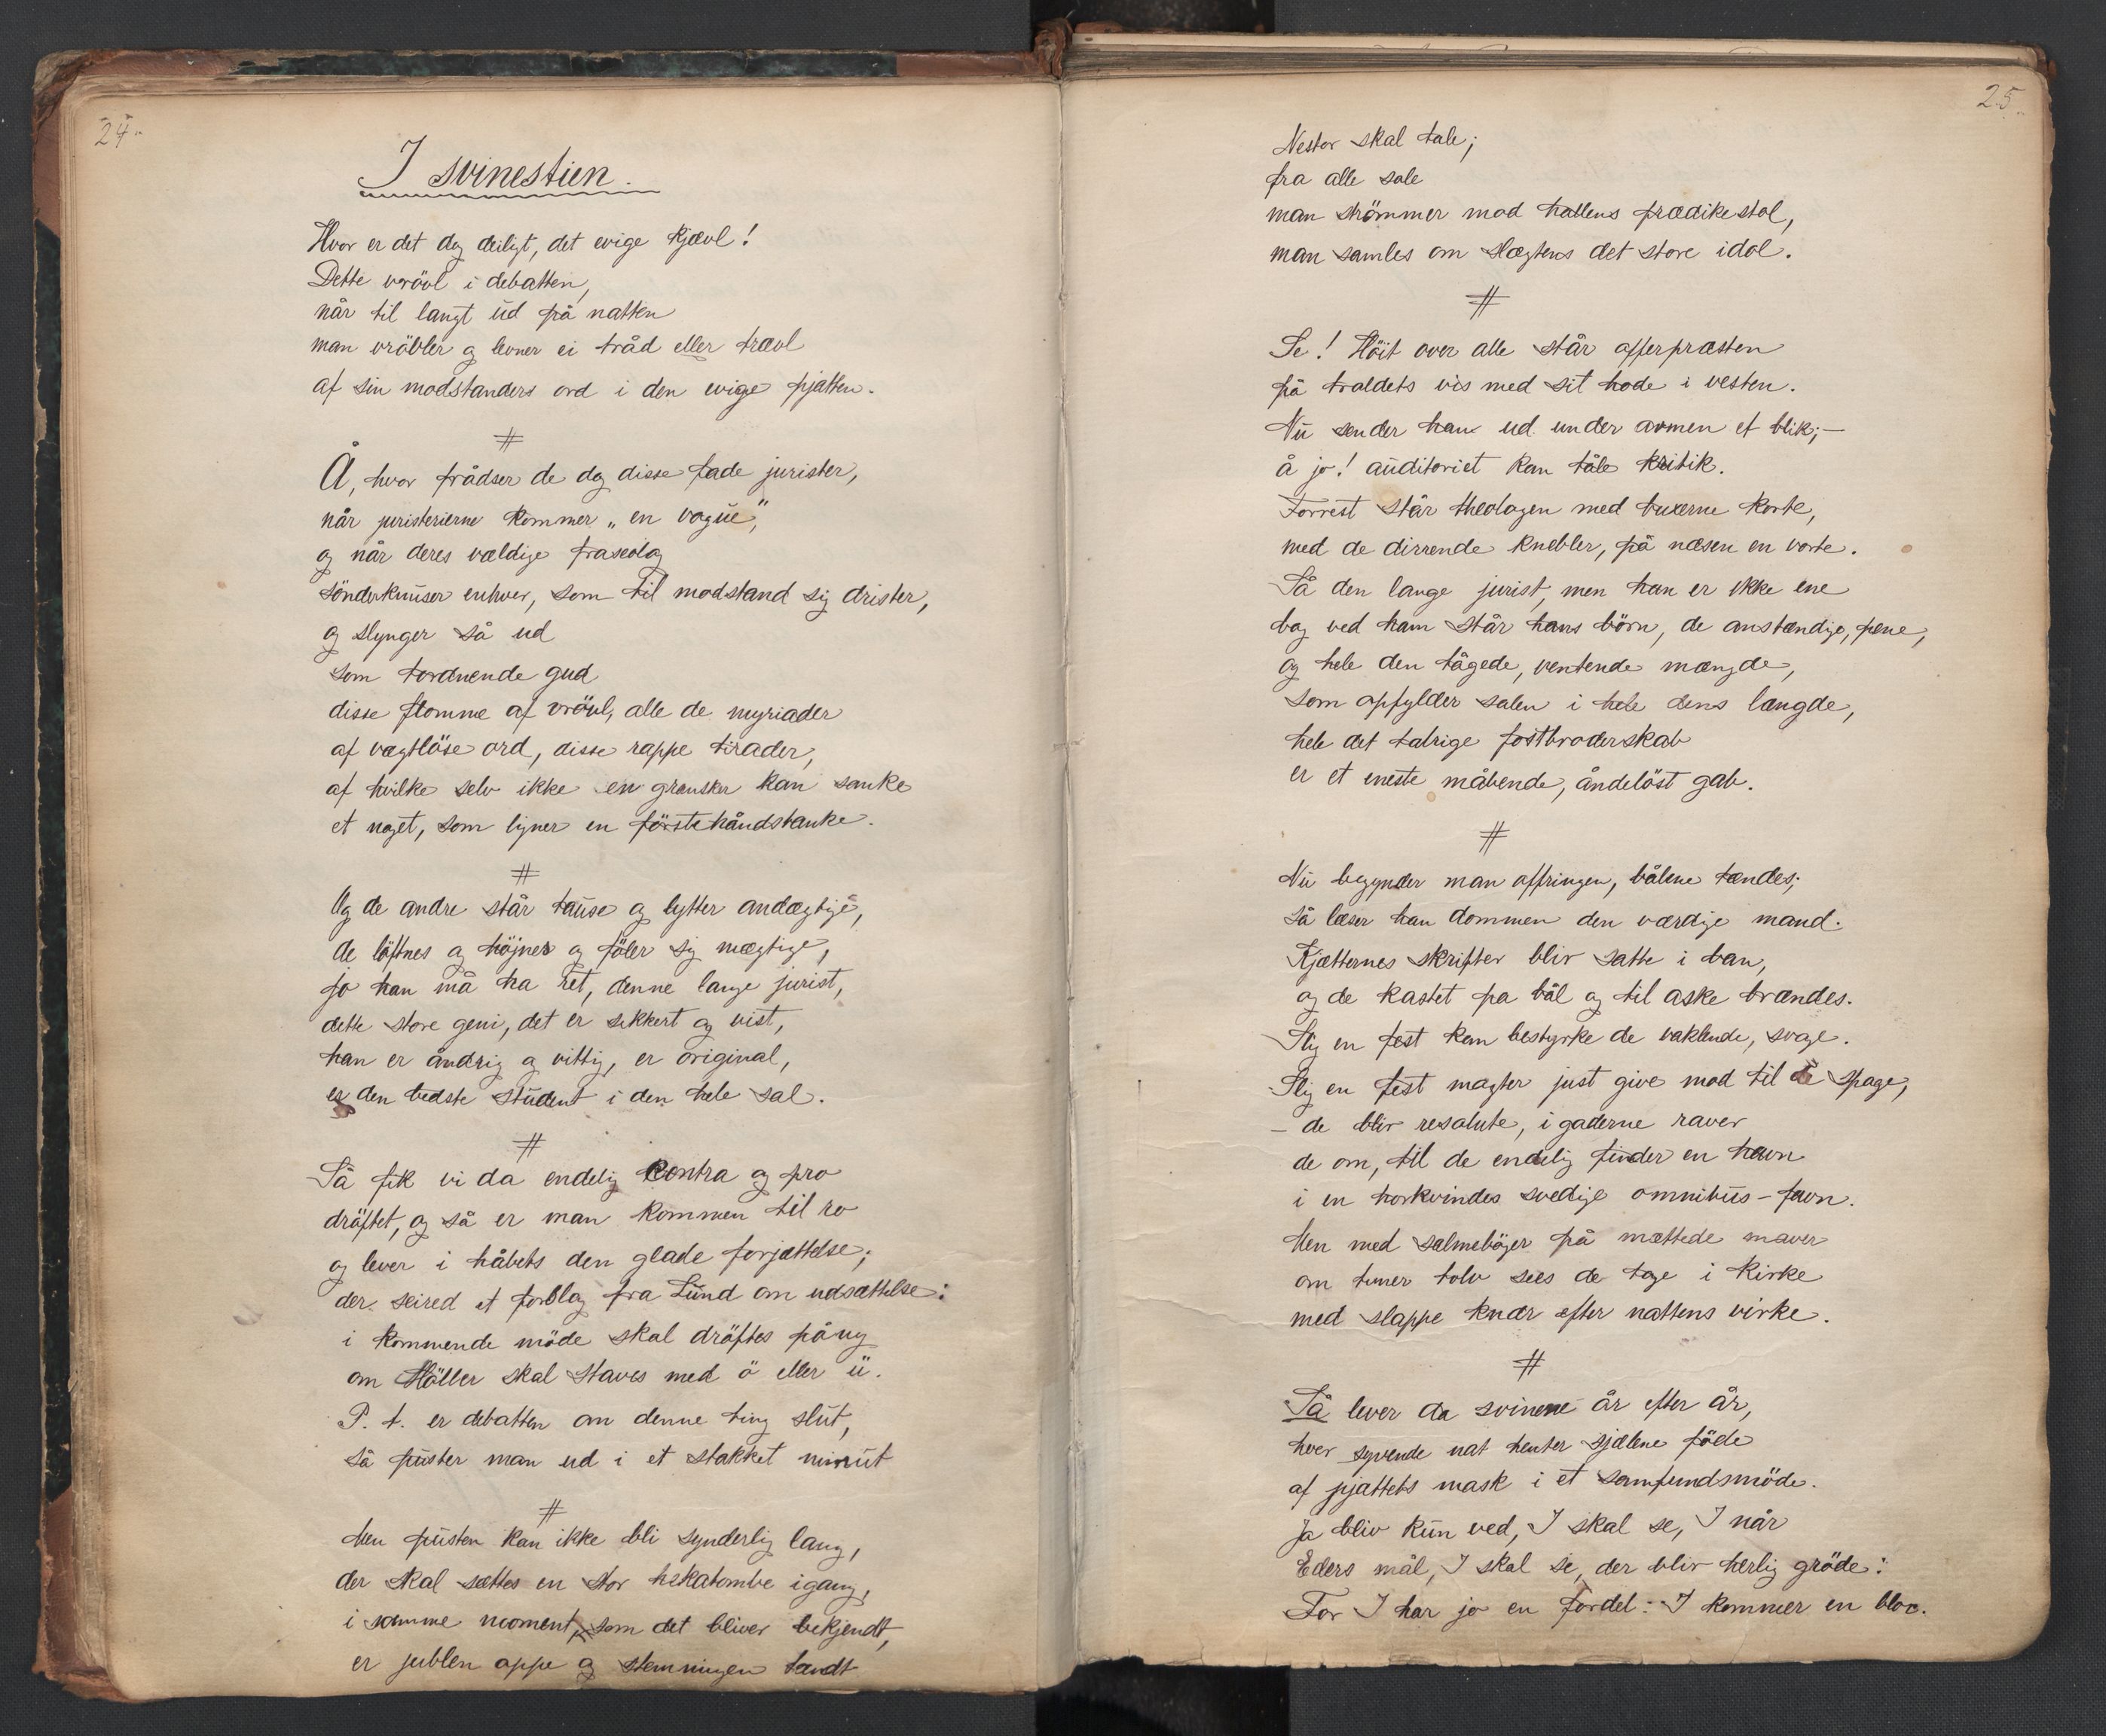 24.
I svinestien.
Hvor er det dog deiligt, det evige kjævl!
Dette vrövl i debatten,
når til langt ud på natten
man vröbler og levner ei tråd eller trævl
af sin modstanders ord i den evige pjatten.
#
Å, hvor frådser de dog disse fade jurister,
når juristerierne kommer „en vogue",
og når deres vældige fraseolog
sönderknuser enhver, som til modstand sig drister,
og slynger så ud
som tordnende gud
disse flomme af vrövl, alle de myriader
af vægtlöse ord, disse rappe tirader,
af hvilke selv ikke en gransker kan sanke
et noget, som ligner en förstehåndstanke.
#
Og de andre står tause og lytter andægtige,
de löftnes og höjnes og föler sig mægtige,
jo han må ha ret, denne lange jurist,
dette store geni, det er sikkert og vist,
han er åndrig og vittig, er original,
er den bedste student i den hele sal.
#
Så fik vi da endelig contra og pro
dröftet, og så er man kommen til ro
og lever i håbets den glade forjættelse;
der seired et forslag fra Lund om udsættelse:
i kommende möde skal dröftes påny
om Höller skal staves med ö eller ü.
P. t. er debatten om denne ting slut,
så puster man ud i et stakket minut
#
Men pusten kan ikke bli synderlig lang,
der skal sættes en stor hekatombe igang,
i samme moment, som det bliver bekjendt,
er jublen oppe og stemningen tændt
25.
Nestor skal tale;
fra alle sale
man strömmer mod hallens prædikestol,
man samles om slægtens det store idol.
#
Se! Höit over alle står offerpræsten
på troldets vis med sit hode i vesten.
Nu sender han ud under armen et blik; —
å jo! auditoriet kan tåle kritik.
Forrest står theologen med buxerne korte,
med de dirrende knebler, på næsen en vorte.
Så den lange jurist, men han er ikke ene
bag ved ham står hans börn, de anstændige, pene,
og hele den tågede, ventende mængde,
som opfylder salen i hele dens længde,
hele det talrige fostbroderskab
er et eneste måbende, åndelöst gab.
#
Nu begynder man offringen, bålene tændes;
så læser han dommen den værdige mand.
Kjætternes skrifter blir satte i ban,
og de kastet pa bål og til aske brændes.
Slig en fest kan bestyrke de vaklende, svage.
Slig en fest magter just give mod til de spage,
— de blir resolute, i gaderne raver
de om, til de endelig finder en havn
i en horkvindes svedige omnibus-favn.
Men med salmebøger på mættede maver
om timer tolv sees de tage i kirke
med slappe knær efter nattens virke.
#
Så lever da svinene år efter år,
hver syvende nat henter sjælene föde
af pjattets mask i et samfundsmöde.
Ja bliv kun ved, I skal se, I når
Eders mål, I skal se, der blir herlig gröde:
For I har jo en fordel: I kommer en bloc.